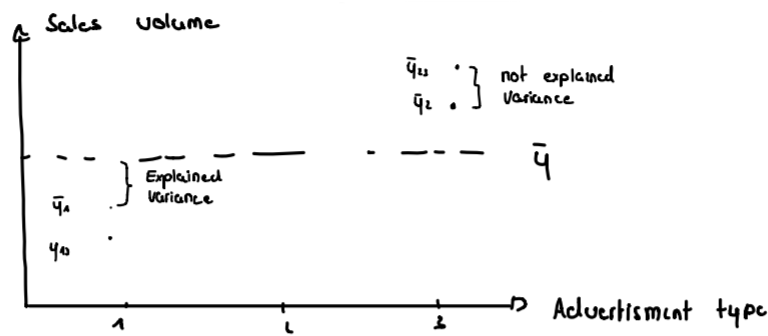 Sales volume
ȳ₂₃
not explained
variance
ȳ₂
ȳ
Explained
variance
ȳ₁
y₁₃
1
2
3
Advertisment type